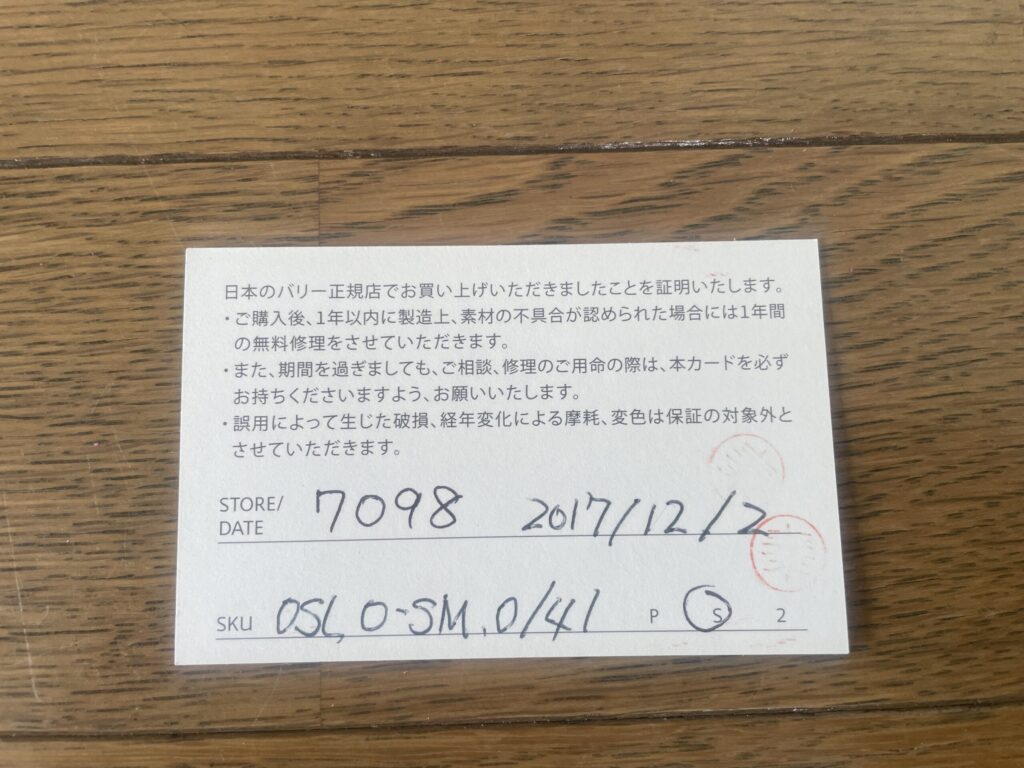 日本のバリー正規店でお買い上げいただきましたことを証明いたします。
・ご購入後、1年以内に製造上、素材の不具合が認められた場合には1年間
の無料修理をさせていただきます。
・また、期間を過ぎましても、ご相談、修理のご用命の際は、本カードを必ず
お持ちくださいますよう、お願いいたします。
・誤用によって生じた破損、経年変化による摩耗、変色は保証の対象外と
させていただきます。
STORE/ 7098 2017/12/2
DATE
SKU OSL, O-SM, 0/41 P S 2